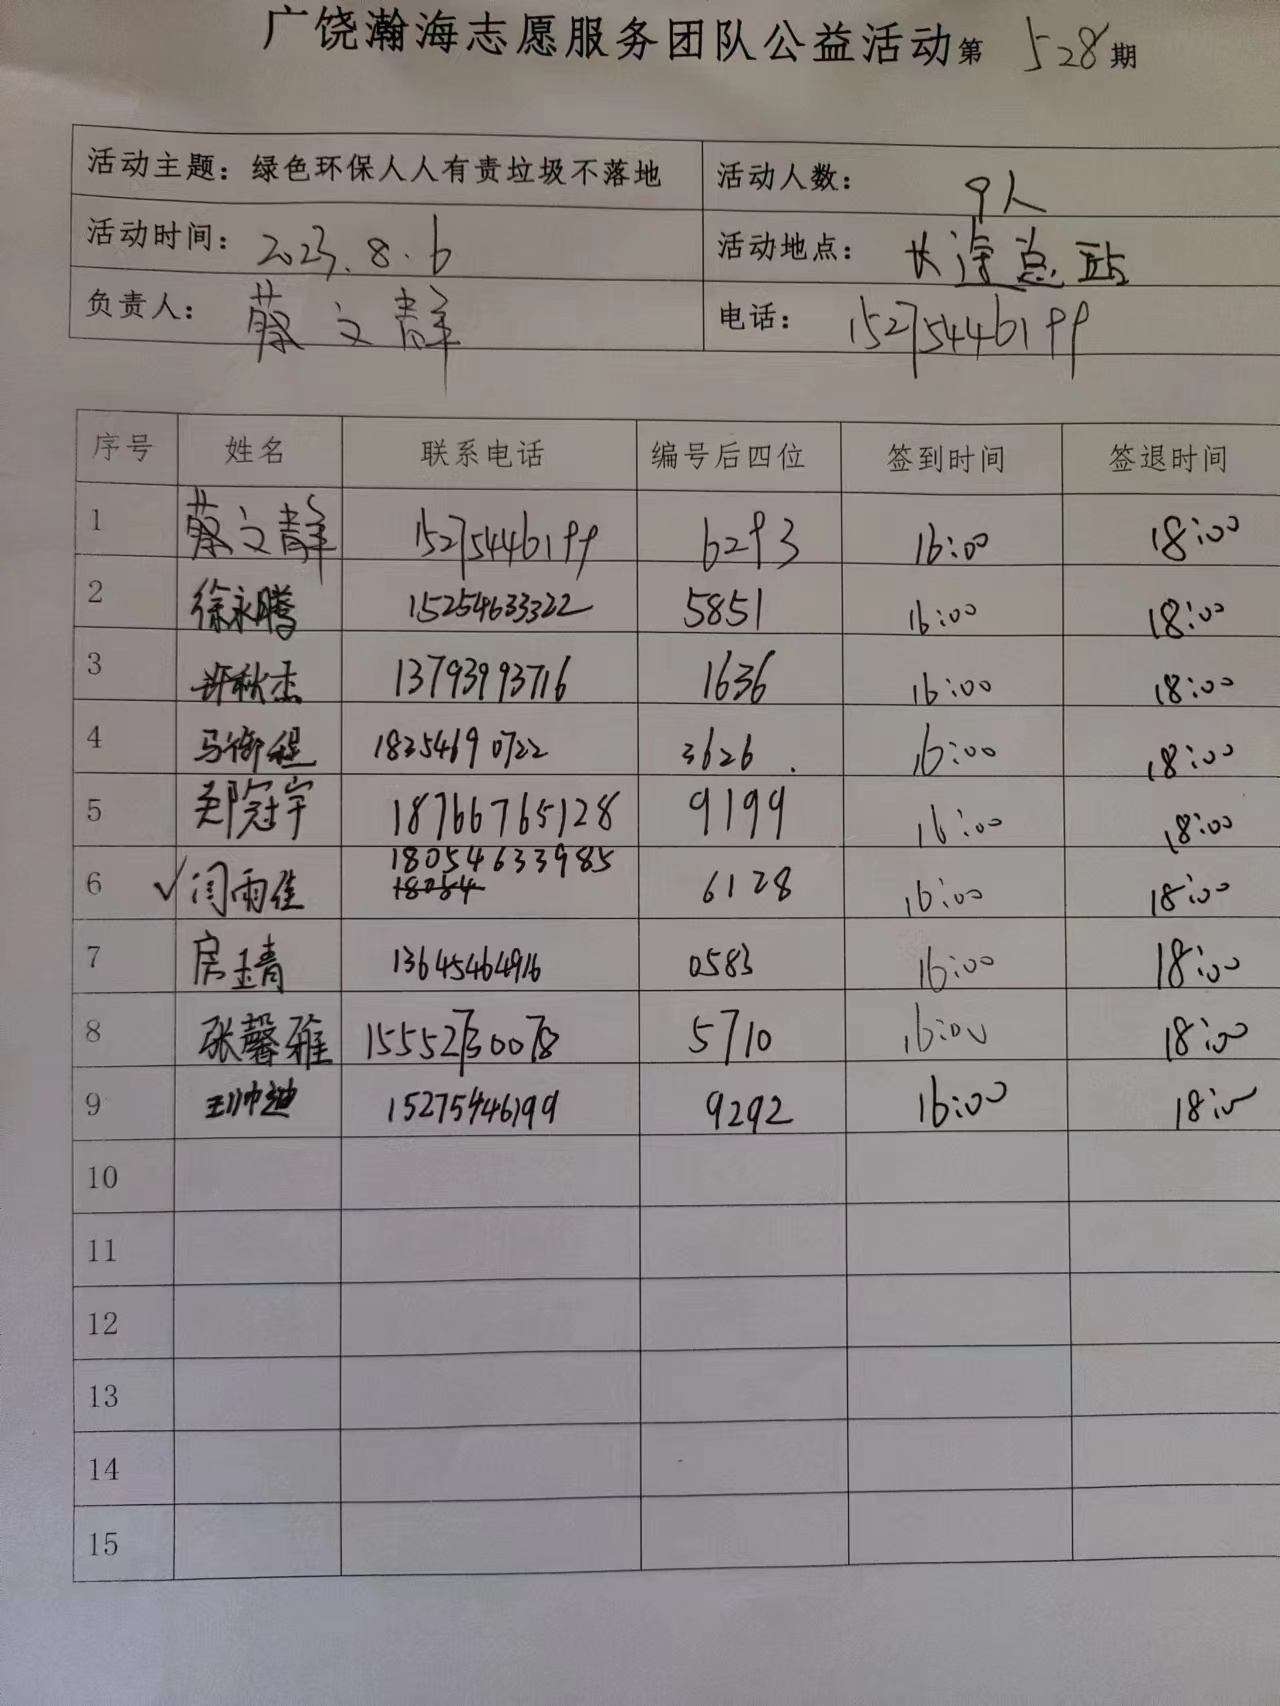 广饶瀚海志愿服务团队公益活动第 528 期
活动主题：绿色环保人人有责垃圾不落地 活动人数： 9人
活动时间： 2023.8.6 活动地点： 长途总站
负责人： 蔡文群 电话： 15275446199
序号 姓名 联系电话 编号后四位 签到时间 签退时间
1 蔡文群 15275446199 6293 16:00 18:00
2 徐永腾 15254633322 5851 16:00 18:00
3 许秋杰 13793993716 1636 16:00 18:00
4 马衙程 18354690722 3626 16:00 18:00
5 郑冠宇 18766765128 9199 16:00 18:00
18054633985
6 √ 闫雨佳 18054 6128 16:00 18:00
7 房玉青 13645464916 0583 16:00 18:00
8 张馨雅 15552730078 5710 16:00 18:00
9 王帅迪 15275446199 9292 16:00 18:00
10
11
12
13
14
15